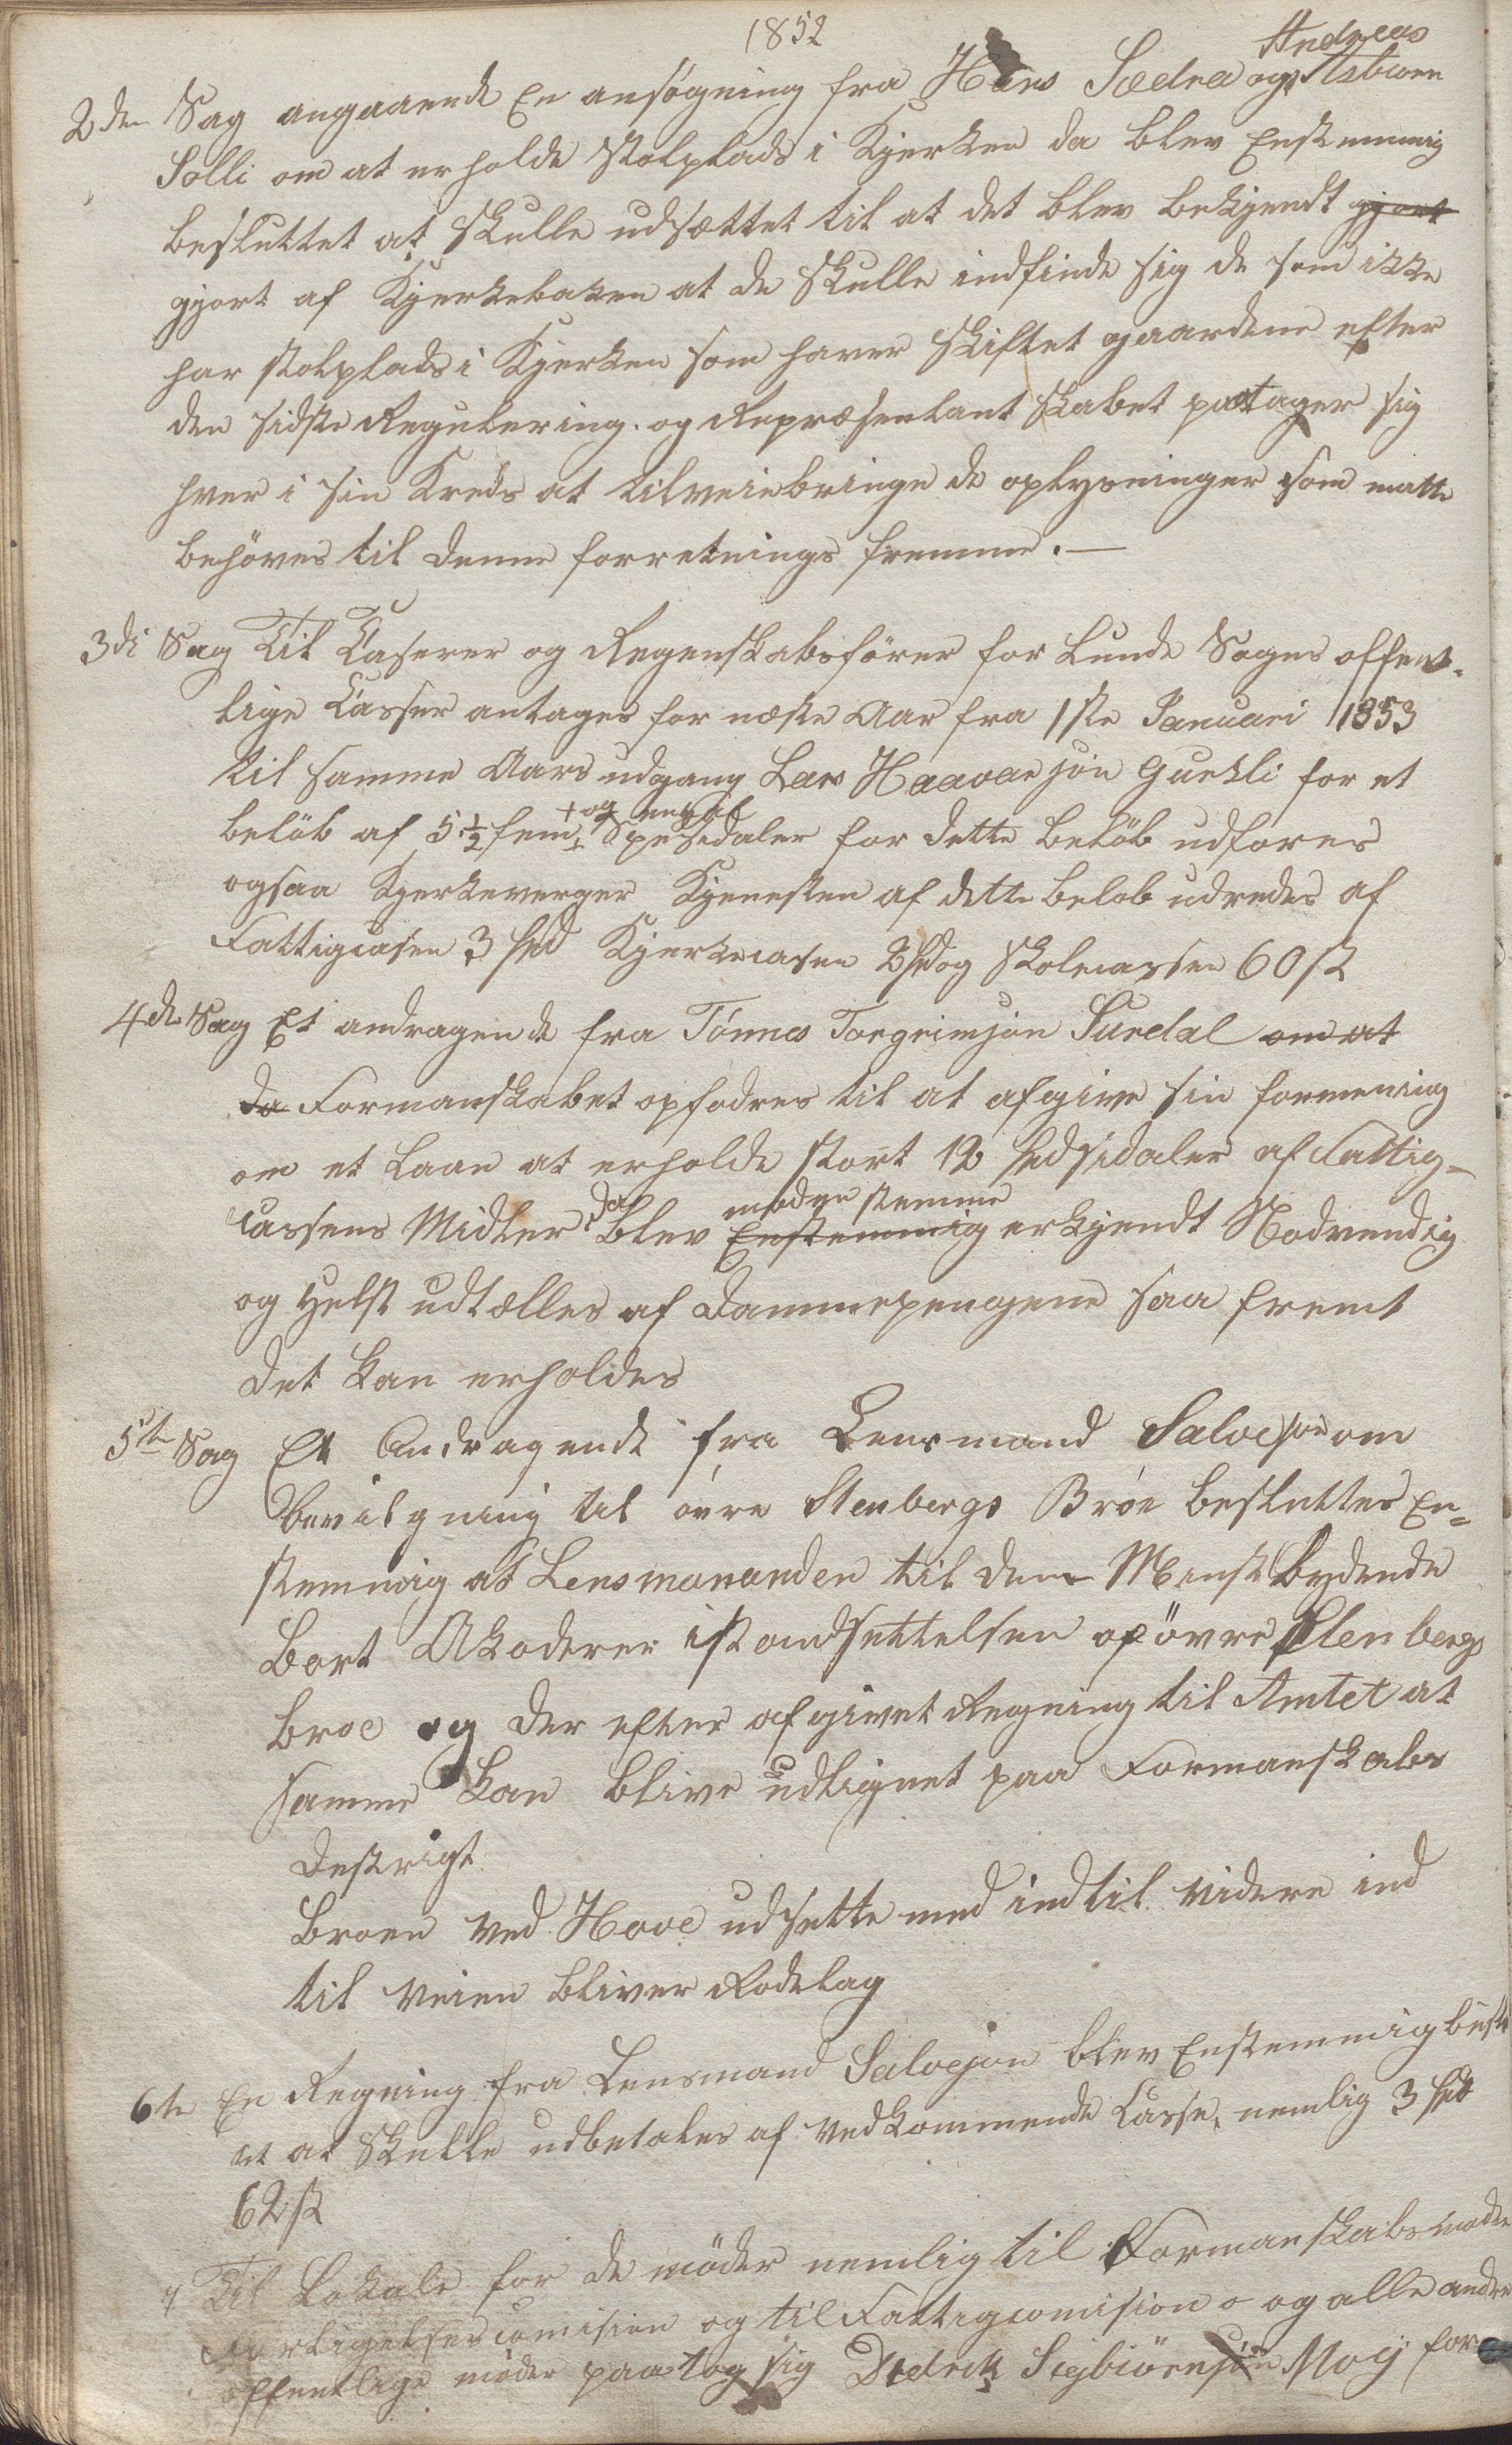 1852
2den Sag angaaende En ansøgning fra Hans Sædra og Andreas Asbiøen
Solli om at erholde Stolplads i Kjerken da blev Enstemmig
besluttet at Skulle udsættet til at det blev bekjendt gjort
gjort af Kjerkebaken at de Skulle indfinde sig de som ikke
har stolplads i Kjerken som haver Skiftet gaardene efter
den sidste Regulering. og Repræsentant Skabet paatager sig
hver i sin Kreds at tilveiebringe de oplysninger som matte
behöves til denne forretnings fremme. —
3die Sag Til Caserer og Regenskabsförer for Lunde Sogns offent-
lige Casser antages for næste Aar fra 1ste Januari 1853
til samme Aars udgang Lars Haavarsjön Gurkli for et
belöb af 5 1/2 fem + og en halv Spesidaler for dette Belöb udföres
ogsaa Kjerkeverger Tjenesten af dette belob udredes af
Fattigcasen 3 spd Kjerkecasen 2 spd og Skolecassen 60 sk
4de Sag Et andragende fra Tönnes Torgrimsjön Surdal om at
da Formanskabet opfodres til at afgive sin formening
om et Laan at erholde stort 12 spesidaler af Fattig-
cassens Midler da blev Enstemmig med en stemme erkjendt Nodvendig
og Helst udtælles af Dammepengene saa fremt
det kan erholdes
5te Sag Et Andragende fra Lensmand Salvesen om
Bevilgning til övre Stenbergs Bröe besluttes En=
stemmig at Lensmananden til den Minstbydende
Bort Akoderer istandsettelsen op övre Stenbergs
broe og der efter afgivet Regning til Amtet at
samme kan blive udlignet paa Formanskabs
Destrigt
Broen ved Hove udsette med indtil videre ind
til veien bliver Rodelag
6te En Regning fra Lensmand Salvesjon blev Enstemmig beslut
et at Skulle udbetales af vedkommende Casse, nemlig 3 spd
62 sk
7 Til Lokale for de möder nemlig til Formanskabsmöder
Forligelsescomision og til Fattigcomision o og alle andre
offentlige möder paatog sig Didrik Siegbiörnsjön Moij for